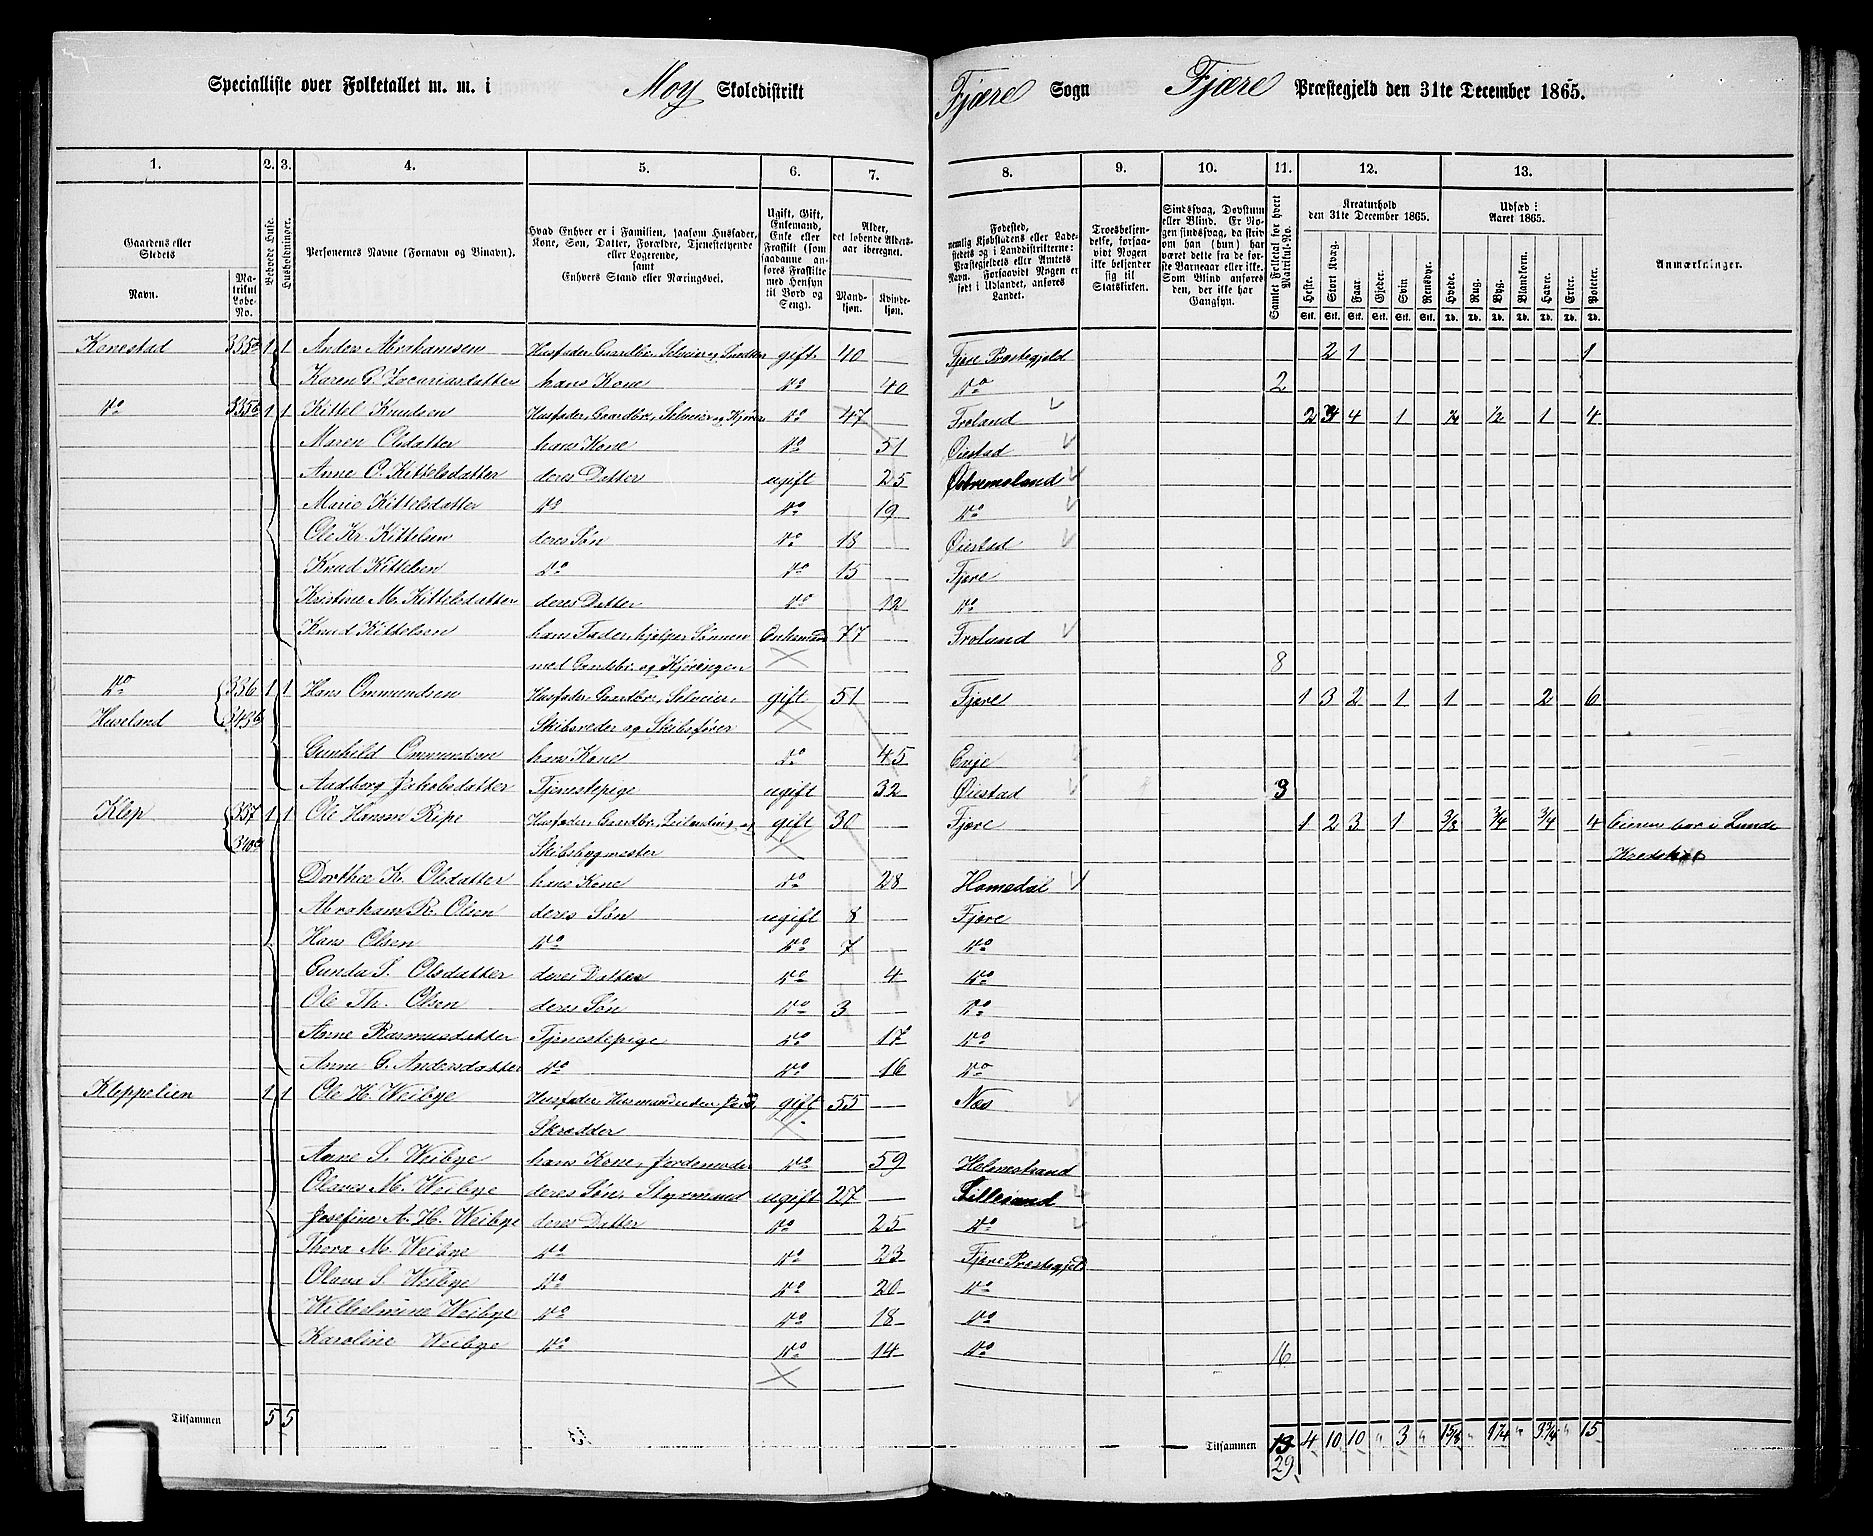 Specialliste over Folketallet m. m. i Moy Skoledistrikt Fjære Sogn Fjære Præstegjeld den 31te December 1865.
1. 2. 3. 4. 5. 6. 7. 8. 9. 10. 11. 12. 13.
Gaardens eller Stedets Navn. Matrikul Løbe-No. Beboede Huse. Husholdninger. Personernes Navne (Fornavn og Tilnavn). Hvad Enhver er i Familien, saasom Husfader, Kone, Søn, Datter, Forældre, Tjenestetyende eller Logerende, samt Enhvers Stand eller Næringsvei. Ugift, Gift, Enkemand, Enke eller Fraskilt (saadanne anføres Fraskilte med Hensyn til Bord og Seng). Alder, det løbende Aldersaar iberegnet. Mandkjøn. Kvindekjøn. Fødested, nemlig Kjøbstadens eller Ladestedets og i Landdistrikterne: Præstegjeldets eller Amtets Navn. Forsaavidt Nogen er født i Udlandet, anføres Landet. Troesbekjendelse, forsaavidt Nogen ikke bekjender sig til Statskirken. Sindssvag, Døvstum eller Blind. Samlet Folketal for hvert Matrikul-No. Kreaturhold den 31te December 1865. Heste. Stort Kvæg. Faar. Gjeder. Svin. Rensdyr. Udsæd i Aaret 1865. Hvede. Rug. Byg. Blandkorn. Havre. Erter. Poteter. Anmærkninger.
Konestad 335a 1 1 Anders Abrahamsen Husfader, Gaardbr., Selveier og gift 40 Fjære Præstegjeld 2 1 1
Karen G. Zacariasdatter hans Kone do 40 do 2
do 335b 1 1 Kittel Knudsen Husfader, Gaardbr., Selveier og Kjører do 47 Froland 2 4 1 1 4
Maren Olsdatter hans Kone do 51 Øiestad
Anne O. Kittelsdatter deres Datter ugift 25
Marie Kittelsdatter do do 19 do
Ole Kr. Kittelsen deres Søn do 18 Øiestad
Knud Kittelsen do do 15 Fjære
Kristine M. Kittelsdatter deres Datter do 12 do
Knud Kittelsen hans Fader, hjælper Sønnen Enkemand 77 Froland
med Gaardsbr. og Kjøringen 8
do 336 1 1 Hans Ommundsen Husfader, Gaardbr., Selveier, gift 51 Fjære 1 3 2 1 1 2 6
Huseland 343b Skibsreder og Skibsfører
Gunhild Ommundsen hans Kone do 45 Evje
Andborg Jakobsdatter Tjenestepige ugift 32 Øiestad 3
Klep 337 1 1 Ole Hansen Ripe Husfader, Gaardbr., Leilænding og gift 30 Fjære 1 2 3 1 3/4 3/4 4 Eieren bor i Lunde
340a Skibsbygmester Kredshat
Dorthea K. Olsdatter hans Kone do 28 Homedal
Abraham R. Olsen deres Søn ugift 8 Fjære
Hans Olsen do do 7 do
Gunda S. Olsdatter deres Datter do 4 do
Ole Th. Olsen deres Søn do 3 do
Anne Rasmusdatter Tjenestepige do 17 do
Anne G. Andersdatter do do 16 do
Kleppelien 1 1 Ole H. Weibye Husfader, Husmand uden Jord, gift 55 Næs
Skrædder
Anne S. Weibye hans Kone, Jordemoder do 59 Holmestrand
Olaves M. Weibye deres Søn, Styrmand ugift 27 Lillesand
Josefine A. H. Weibye deres Datter do 25 do
Thora M. Weibye do do 23 Fjære Præstegjeld
Olava S. Weibye do do 20 do
Wilhelmine Weibye do do 18 do
Karoline Weibye do do 14 do 16
Tilsammen 5 5 Tilsammen 13 4 10 10 " 3 " " " " 15
29